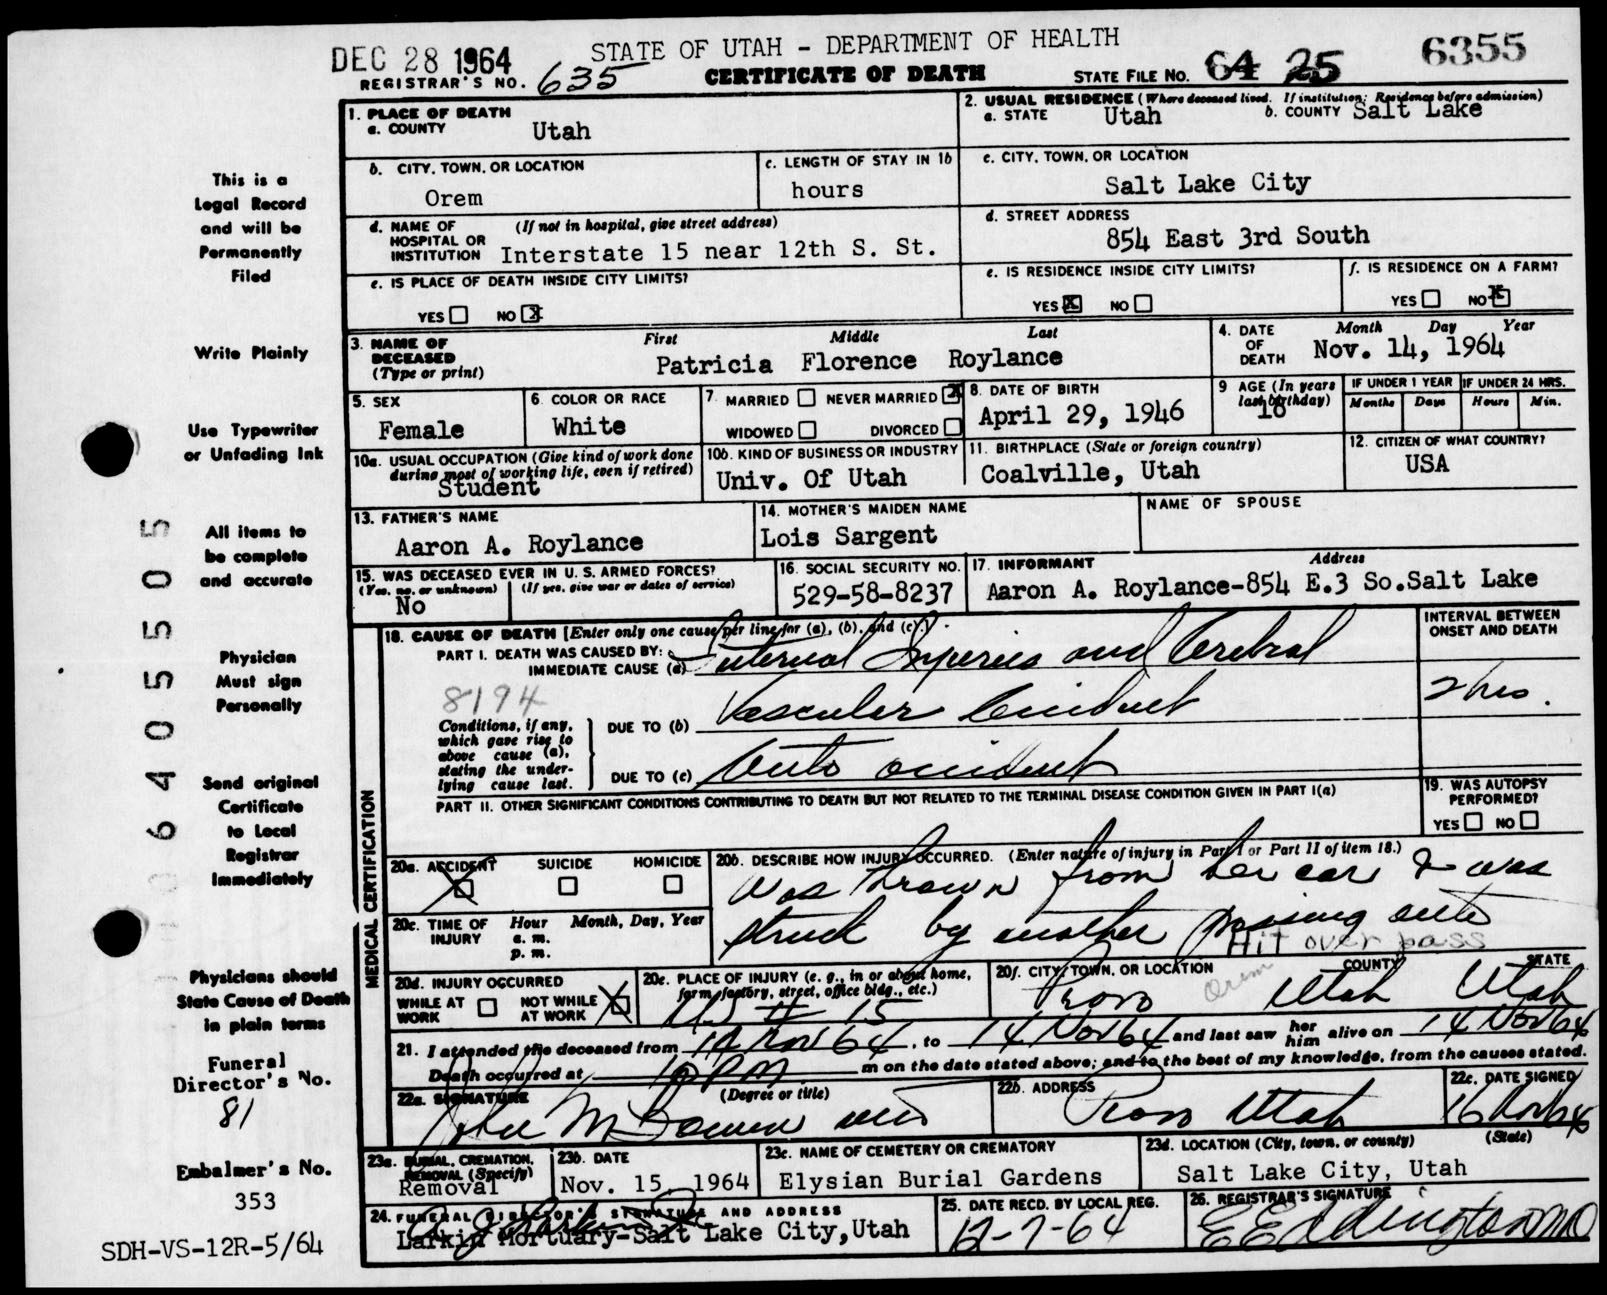 DEC 28 1964
STATE OF UTAH - DEPARTMENT OF HEALTH
CERTIFICATE OF DEATH
REGISTRAR'S NO. 635
STATE FILE NO. 64 25 6355
1. PLACE OF DEATH
a. COUNTY Utah
2. USUAL RESIDENCE (Where deceased lived. If institution: Residence before admission)
a. STATE Utah b. COUNTY Salt Lake
b. CITY, TOWN, OR LOCATION
Orem
c. LENGTH OF STAY IN 1b
hours
c. CITY, TOWN, OR LOCATION
Salt Lake City
d. NAME OF HOSPITAL OR INSTITUTION (If not in hospital, give street address)
Interstate 15 near 12th S. St.
d. STREET ADDRESS
854 East 3rd South
e. IS PLACE OF DEATH INSIDE CITY LIMITS?
YES NO X
e. IS RESIDENCE INSIDE CITY LIMITS?
YES X NO
f. IS RESIDENCE ON A FARM?
YES NO X
3. NAME OF DECEASED (Type or print)
First Middle Last
Patricia Florence Roylance
4. DATE OF DEATH Month Day Year
Nov. 14, 1964
5. SEX
Female
6. COLOR OR RACE
White
7. MARRIED NEVER MARRIED X
WIDOWED DIVORCED
8. DATE OF BIRTH
April 29, 1946
9 AGE (In years last birthday)
18
IF UNDER 1 YEAR
Months Days
IF UNDER 24 HRS.
Hours Min.
10a. USUAL OCCUPATION (Give kind of work done during most of working life, even if retired)
Student
10b. KIND OF BUSINESS OR INDUSTRY
Univ. Of Utah
11. BIRTHPLACE (State or foreign country)
Coalville, Utah
12. CITIZEN OF WHAT COUNTRY?
USA
13. FATHER'S NAME
Aaron A. Roylance
14. MOTHER'S MAIDEN NAME
Lois Sargent
NAME OF SPOUSE
15. WAS DECEASED EVER IN U. S. ARMED FORCES?
(Yes, no, or unknown) (If yes, give war or dates of service)
No
16. SOCIAL SECURITY NO.
529-58-8237
17. INFORMANT Address
Aaron A. Roylance-854 E.3 So.Salt Lake
MEDICAL CERTIFICATION
18. CAUSE OF DEATH [Enter only one cause per line for (a), (b), and (c).]
INTERVAL BETWEEN ONSET AND DEATH
PART I. DEATH WAS CAUSED BY:
IMMEDIATE CAUSE (a) Internal Injuries and Cerebral
8194
Conditions, if any, which gave rise to above cause (a), stating the underlying cause last.
DUE TO (b) Vascular Accident
2 hrs.
DUE TO (c) Auto accident
PART II. OTHER SIGNIFICANT CONDITIONS CONTRIBUTING TO DEATH BUT NOT RELATED TO THE TERMINAL DISEASE CONDITION GIVEN IN PART I(a)
19. WAS AUTOPSY PERFORMED?
YES NO
20a. ACCIDENT SUICIDE HOMICIDE
X
20b. DESCRIBE HOW INJURY OCCURRED. (Enter nature of injury in Part I or Part II of item 18.)
Was thrown from her car & was
struck by another passing auto
Hit over pass
20c. TIME OF INJURY Hour Month, Day, Year
a. m.
p. m.
20d. INJURY OCCURRED
WHILE AT WORK NOT WHILE AT WORK X
20e. PLACE OF INJURY (e. g., in or about home, farm, factory, street, office bldg., etc.)
US # 15
20f. CITY, TOWN, OR LOCATION COUNTY STATE
Provo Orem Utah Utah
21. I attended the deceased from 14 Nov 64, to 14 Nov 64 and last saw her him alive on 14 Nov 64
Death occurred at 10 PM m on the date stated above; and to the best of my knowledge, from the causes stated.
22a. SIGNATURE (Degree or title)
22b. ADDRESS
Provo Utah
22c. DATE SIGNED
16 Nov 64
23a. BURIAL, CREMATION, REMOVAL (Specify)
Removal
23b. DATE
Nov. 15, 1964
23c. NAME OF CEMETERY OR CREMATORY
Elysian Burial Gardens
23d. LOCATION (City, town, or county) (State)
Salt Lake City, Utah
24. FUNERAL DIRECTOR'S SIGNATURE AND ADDRESS
Larkin Mortuary-Salt Lake City,Utah
25. DATE RECD. BY LOCAL REG.
12-7-64
26. REGISTRAR'S SIGNATURE
E E Eddington MD
This is a
Legal Record
and will be
Permanently
Filed
Write Plainly
Use Typewriter
or Unfading Ink
All items to
be complete
and accurate
Physician
Must sign
Personally
Send original
Certificate
to Local
Registrar
Immediately
Physicians should
State Cause of Death
in plain terms
Funeral
Director's No.
81
Embalmer's No.
353
SDH-VS-12R-5/64
64055505